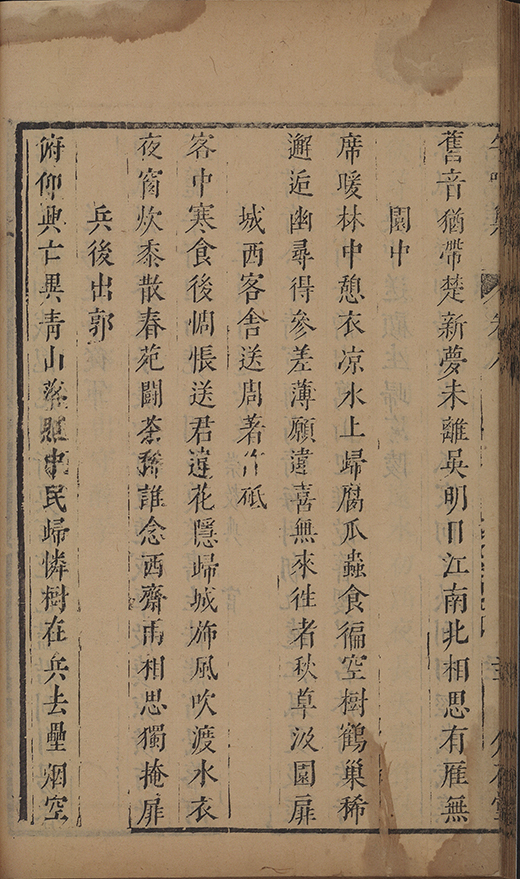 舊音猶帶楚新夢未離吳明日江南北相思有雁無
園中
席暖林中憩衣凉水上歸腐瓜蟲食徧空樹鶴巢稀
邂逅幽尋得參差薄願違喜無來徃者秋草沒園扉
城西客舍送周著
客中寒食後惆悵送君違花隱歸城斾風吹渡水衣
夜窗炊黍散春苑鬬茶稀誰念西齋雨相思獨掩扉
兵後出郭
俯仰興亡異青山落照中民歸憐樹在兵去壘烟空